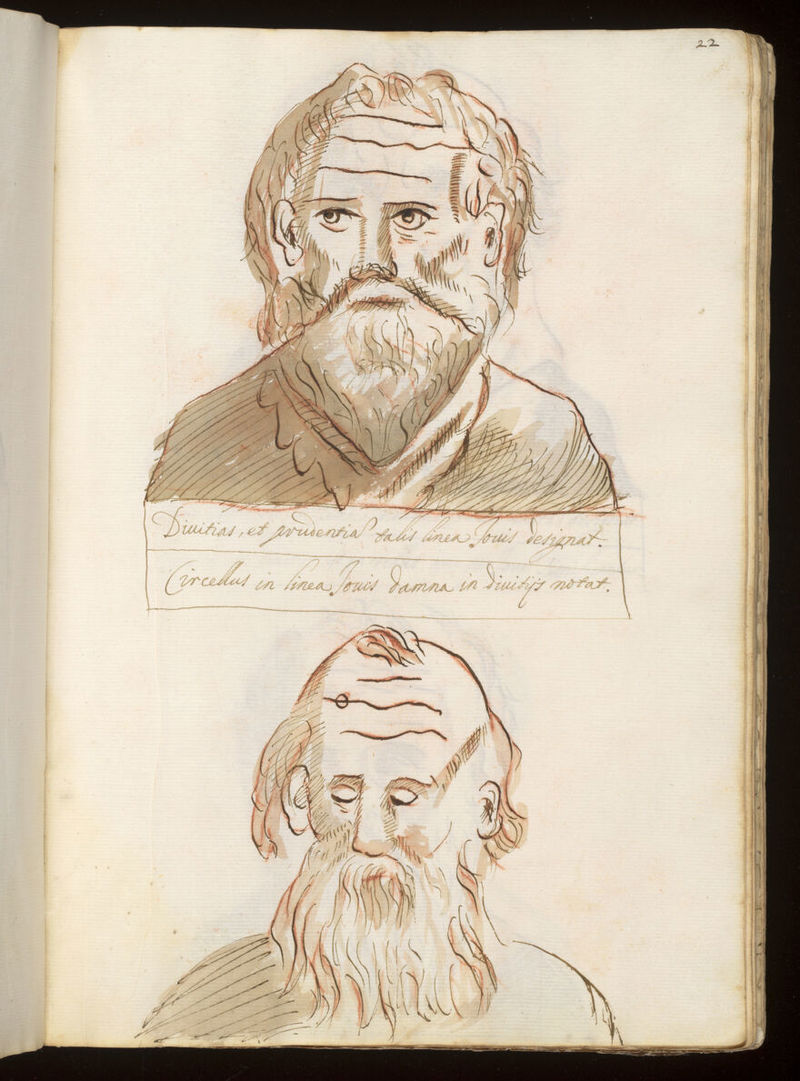 22
Diuitias, et prudentiā talis linea Jouis designat.
Circellus in linea Jouis damna in diuitijs notat.